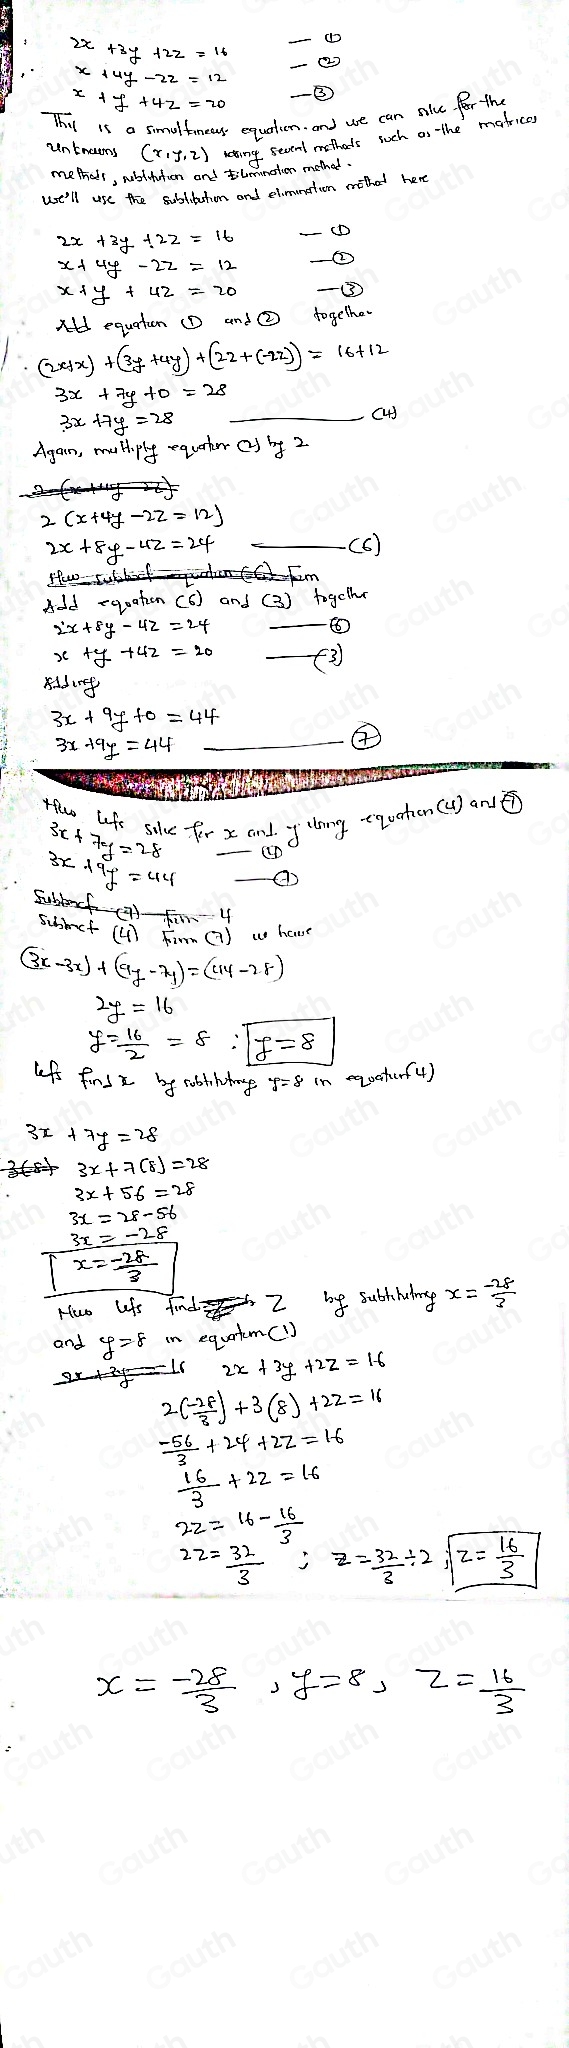 2x + 3y + 2z = 16 — ①
x + 4y - 2z = 12 — ②
x + y + 4z = 20 — ③
This is a simultineus equation. and we can solve for the
unknowns (x, y, z) using several methods such as the matrices
methods, substitution and Elimination method.
we'll use the substitution and elimination method here
2x + 3y + 2z = 16 — ①
x + 4y - 2z = 12 — ②
x + y + 4z = 20 — ③
Add equation ① and ② together
(2x+x) + (3y+4y) + (2z+(-2z)) = 16+12
3x + 7y + 0 = 28
3x + 7y = 28 — (4)
Again, multiply equation (2) by 2
2 (x+4y-2z)
2 (x+4y-2z = 12)
2x + 8y - 4z = 24 — (6)
Now subtract equation (6) from
Add equation (6) and (3) together
2x + 8y - 4z = 24 — ⑥
x + y + 4z = 20 — (3)
Adding
3x + 9y + 0 = 44
3x + 9y = 44 — ⑦
Now lets solve for x and y using equation (4) and ⑦
3x + 7y = 28 — (4)
3x + 9y = 44 — ⑦
Subtract (7) from 4
Subtract (4) from (7) we have
(3x-3x) + (9y-7y) = (44-28)
2y = 16
y = 16/2 = 8 ; y = 8
lets find x by subtituting y=8 in equation (4)
3x + 7y = 28
3(8) 3x + 7(8) = 28
3x + 56 = 28
3x = 28 - 56
3x = -28
x = -28/3
Now lets find z by subtituting x = -28/3
and y = 8 in equation (1)
2x + 3y = 16 2x + 3y + 2z = 16
2(-28/3) + 3(8) + 2z = 16
-56/3 + 24 + 2z = 16
16/3 + 2z = 16
2z = 16 - 16/3
2z = 32/3 ; z = 32/3 ÷ 2 ; z = 16/3
x = -28/3 , y = 8 , z = 16/3